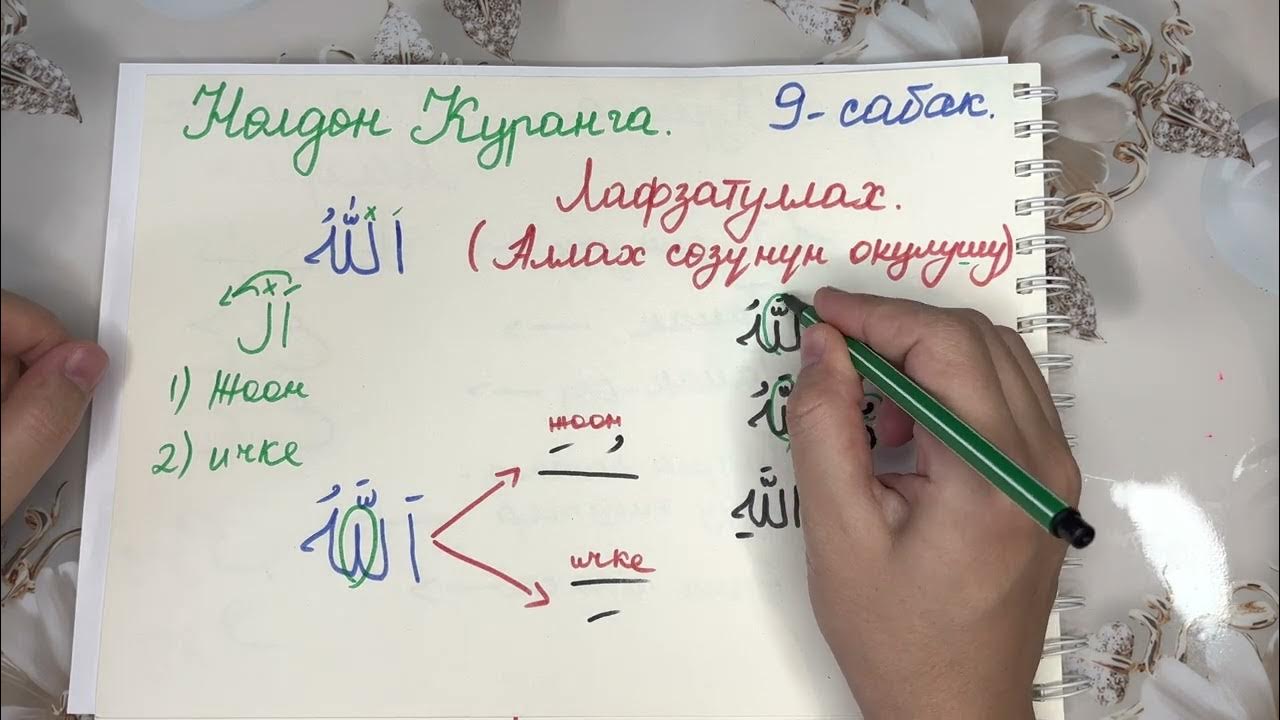 Нолдон Куранга.
9-сабак.
Лафзатуллах.
(Аллах сөзүнүн окулушу)
اَللّٰهُ
اَلْ
1) Жоон
2) ичке
اَللَّهُ
жоон
ичке